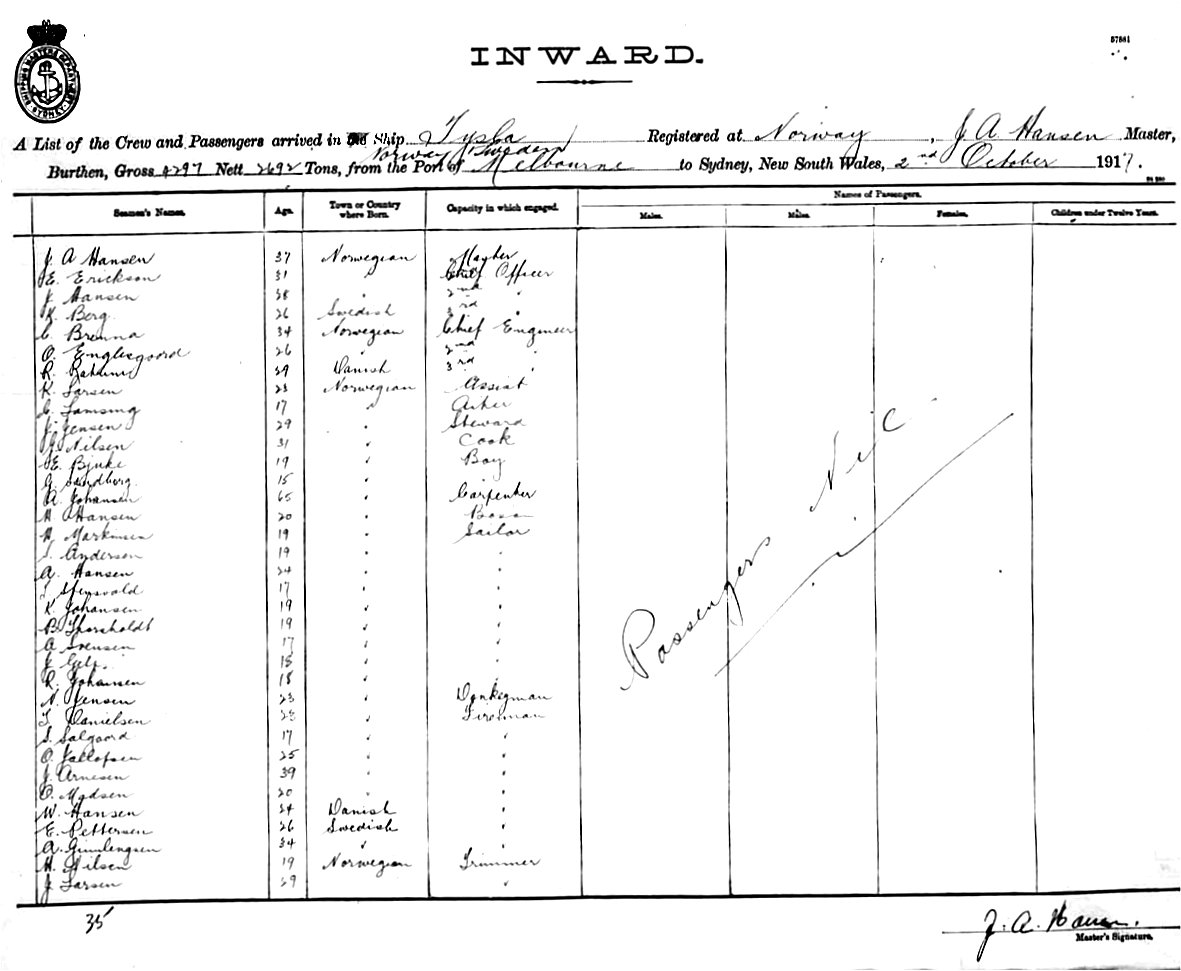 57881
INWARD.
SHIPPING MASTER'S DEPARTMENT SYDNEY
A List of the Crew and Passengers arrived in Ship Tysla Registered at Norway, J A Hansen Master,
Norway & Sweden
Burthen, Gross 4297 Nett 2692 Tons, from the Port of Melbourne to Sydney, New South Wales, 2nd October 1917.
Names of Passengers.
Seamen's Names. Age. Town or Country where Born. Capacity in which engaged. Males. Males. Females. Children under Twelve Years.
J. A Hansen 37 Norwegian Master
E. Erickson 31 " Chief Officer
J Hansen 28 " 2nd "
K. Berg. 26 Swedish 3rd "
C. Brenna 34 Norwegian Chief Engineer
O. Englesgaard 26 " 2nd "
R. 29 Danish 3rd "
K. Larsen 23 Norwegian Assist
C. Lamsing 17 "
J. Jensen 29 " Steward
J. Nilsen 31 " Cook
E. Bjuke 19 " Boy
G. Sandberg. 15 "
A. Johansen 65 " Carpenter
H. Hansen 20 " Bosun
H. Markusen 19 " Sailor
S. Andersen 19 " "
A. Hansen 24 " "
17 " "
K. Johansen 19 " "
B. Thorsholdt 19 " "
A Svensen 17 " "
J. 18 " "
R. Johansen 18 " "
N. Jensen 23 " Donkeyman
T. Danielsen 28 " Fireman
S. Salgaard 17 " "
O. 25 " "
J. Arnesen 39 " "
O. Madsen 20 " "
W. Hansen 24 Danish "
E. Pettersen 26 Swedish "
A. 34 " "
H. Nilsen 19 Norwegian Trimmer
J. Larsen 29 "
Passengers Nil
35
J. A. Hansen.
Master's Signature.